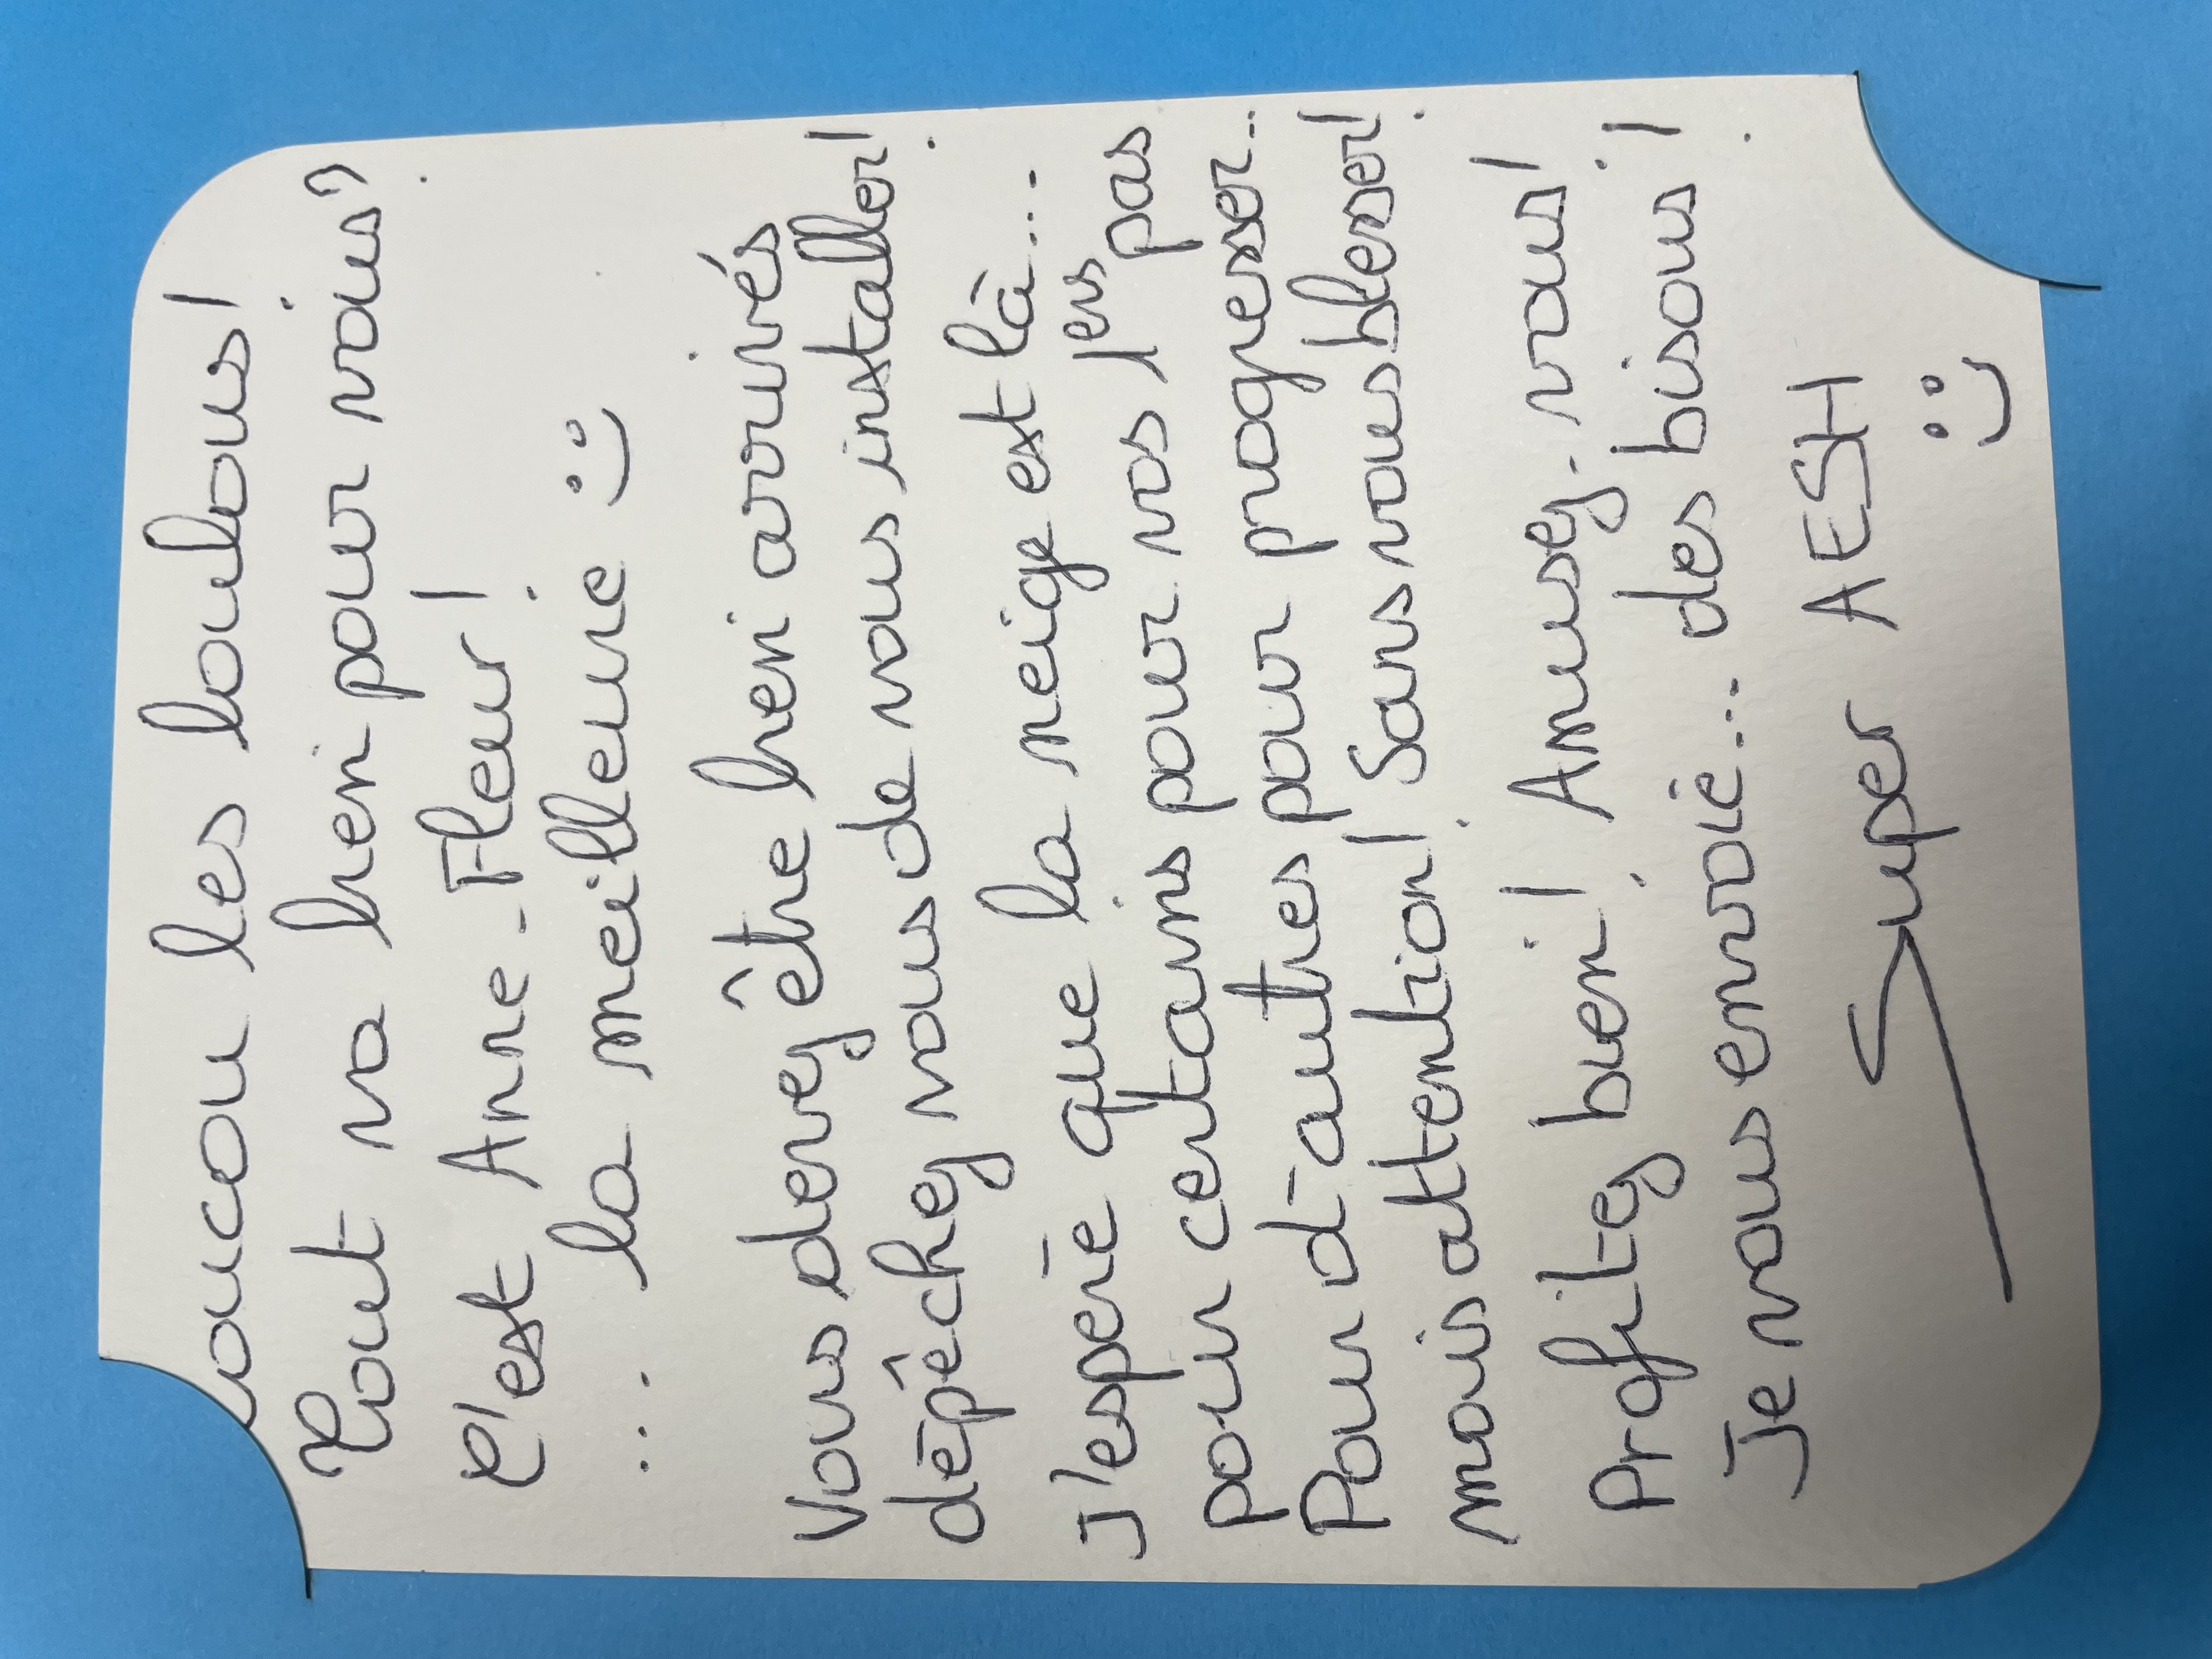 Coucou les loulous!
Tout va bien pour vous?
C'est Anne-Fleur!
... la meilleure :)
Vous devez être bien arrivés
dépêchez vous de vous installer!
J'espère que la neige est là...
pour certains pour vos 1ers pas
Pour d'autres pour progresser...
mais attention! Sans vous blesser!
Profitez bien! Amusez-vous!
Je vous envoie... des bisous!!
Super AESH
:)